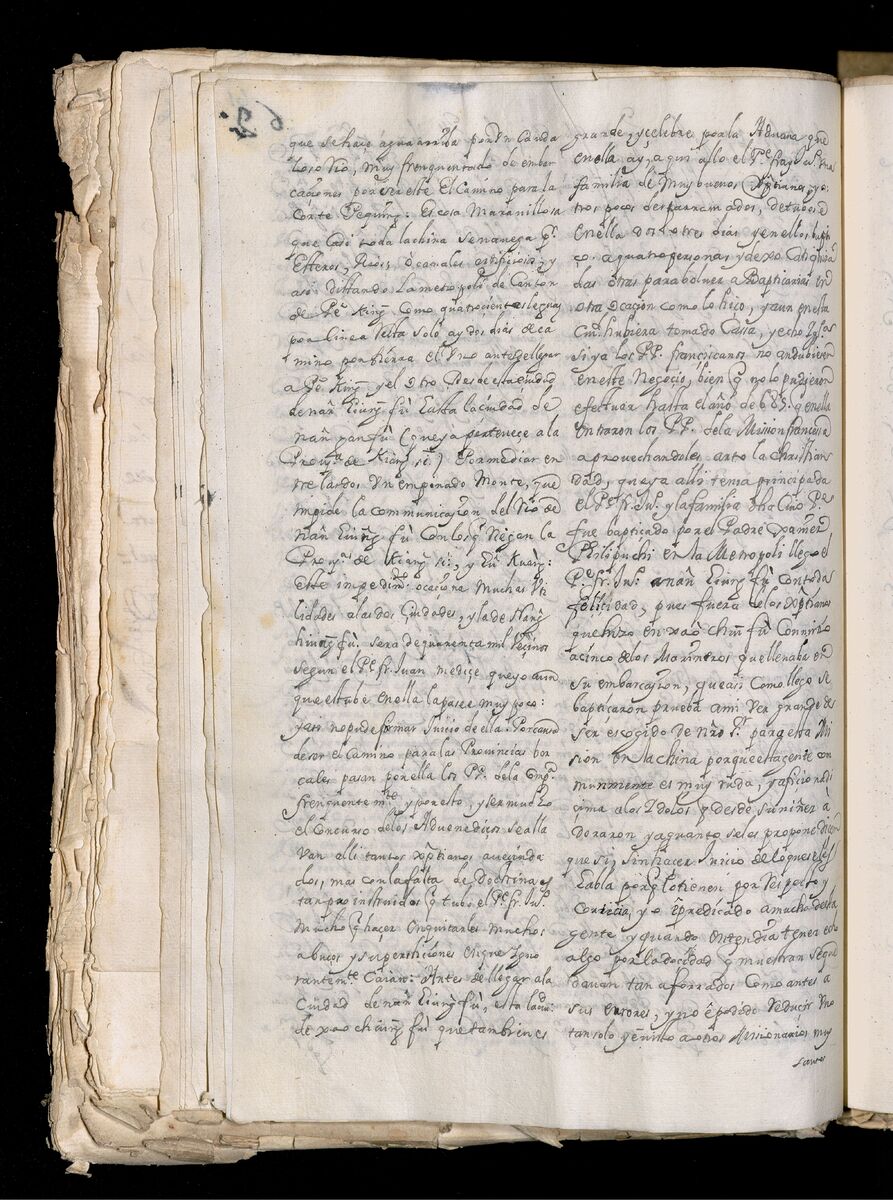 que se haze agua arriba por Vn Cauda
loso Rio, muy frenquentado de embar
caçiones por ser este El Camino para la
Corte Pequing: Es cosa Marauillosa
que Casi toda la china se nauega pr.
Esteros, Rios, ò canales artifiçiosos, y
asi distando La metropoli de Canton
de Pe King Como quatroçientas leguas
por linea Recta solo ay dos dias de ca
mino por tierra el Vno antes de llegar
a Pe King y el Otro Desde esta ciudad
de nan hiung fu hasta la ciudad de
nan gan fu (que ya pertenece a la
Prou.ª de Kiang si) Por mediar en
tre las dos Vn empinado Monte, que
impide la communicaçion del Rio de
nan hiung fù Con los q Riegan la
Prou.ª de Kiang si, y
este impedim.to ocaçiona muchas Vti
lidades a las dos Ciudades, y la de Nang
hiung fù. sera de quarenta mil Veçinos
segun el Pe. fr. Juan me dize que yo aun
que estube en ella la pase muy poco:
y asi no pude formar Juicio de ella. Por causa
de ser el Camino para las Prouincias bor
eales pasan por ella los PP. de la Comp.ª
frenquentem.te y por esto, y ser mucho
el Concurso de los Aduenediços se alla
van alli tantos xptianos aueçinda
dos, mas con la falta de Doctrina
tan poco instruidos q tubo el Pe. fr. Ju.º
Mucho q haçer en quitarles muchos
abuços y superstiçiones en que Igno
rantem.te Caian: Antes de llegar a la
Ciudad de nan hiung fù, esta la ciu.d
de xao chiung fù que tambien es
grande, y çelebre por la Aduana que
en ella ay, aqui allo el Pe. fray Ju.º Vna
familia de Muy buenos Xptianos, y o
tros pocos desparramados, detubose
en ella dos ò tres dias y en ellos bapti
ço a quatro personas y dexo Catiquiza
das otras para boluer a Baptiçarlas en
otra ocaçion como lo hiço, y aun en esta
Ciu.d hubiera tomado Cassa, y echo Igl.ª
si ya los PP. françiscanos no andubieran
en este Negoçio, bien q no lo pudieron
efectuar hasta el año de 685. q en ella
entraron los PP. de la Mission françesa
aprouechandoles arto la Christian
dad, que ya alli tenia prinçipiada
el Pe. fr. Ju.º y la familia dha Cuio Pe.
fue baptiçado por el Padre
Philipuchi en la Metropoli llego el
Pe. fr. Ju.º a nan hiung fù con toda
feliçidad, pues fuera de los xptianos
que hizo en xao chiu fù Conuirtio
a cinco de los Marineros que lleuaba en
su embarcaçion, que asi Como llego se
baptiçaron prueba a mi Ver grande de
ser escogido de nrò Sr. para esta Mi
sion en la china porque esta gente co
munmente es muy ruda, y afiçionadi
çima a los Idolos q desde su niñez à
doraron y a quanto se les propone diçen
que si, sin haçer Juiçio de lo que se les
habla porq lo tienen por Respecto y
Corteçia, y o è predicado a mucha desta
gente y quando entendia tener echo
algo por la doçilidad q muestran se que
davan tan aforrados Como antes a
sus errores, y no è podido Reducir Vno
tan solo y è uisto a otros Missionarios muy